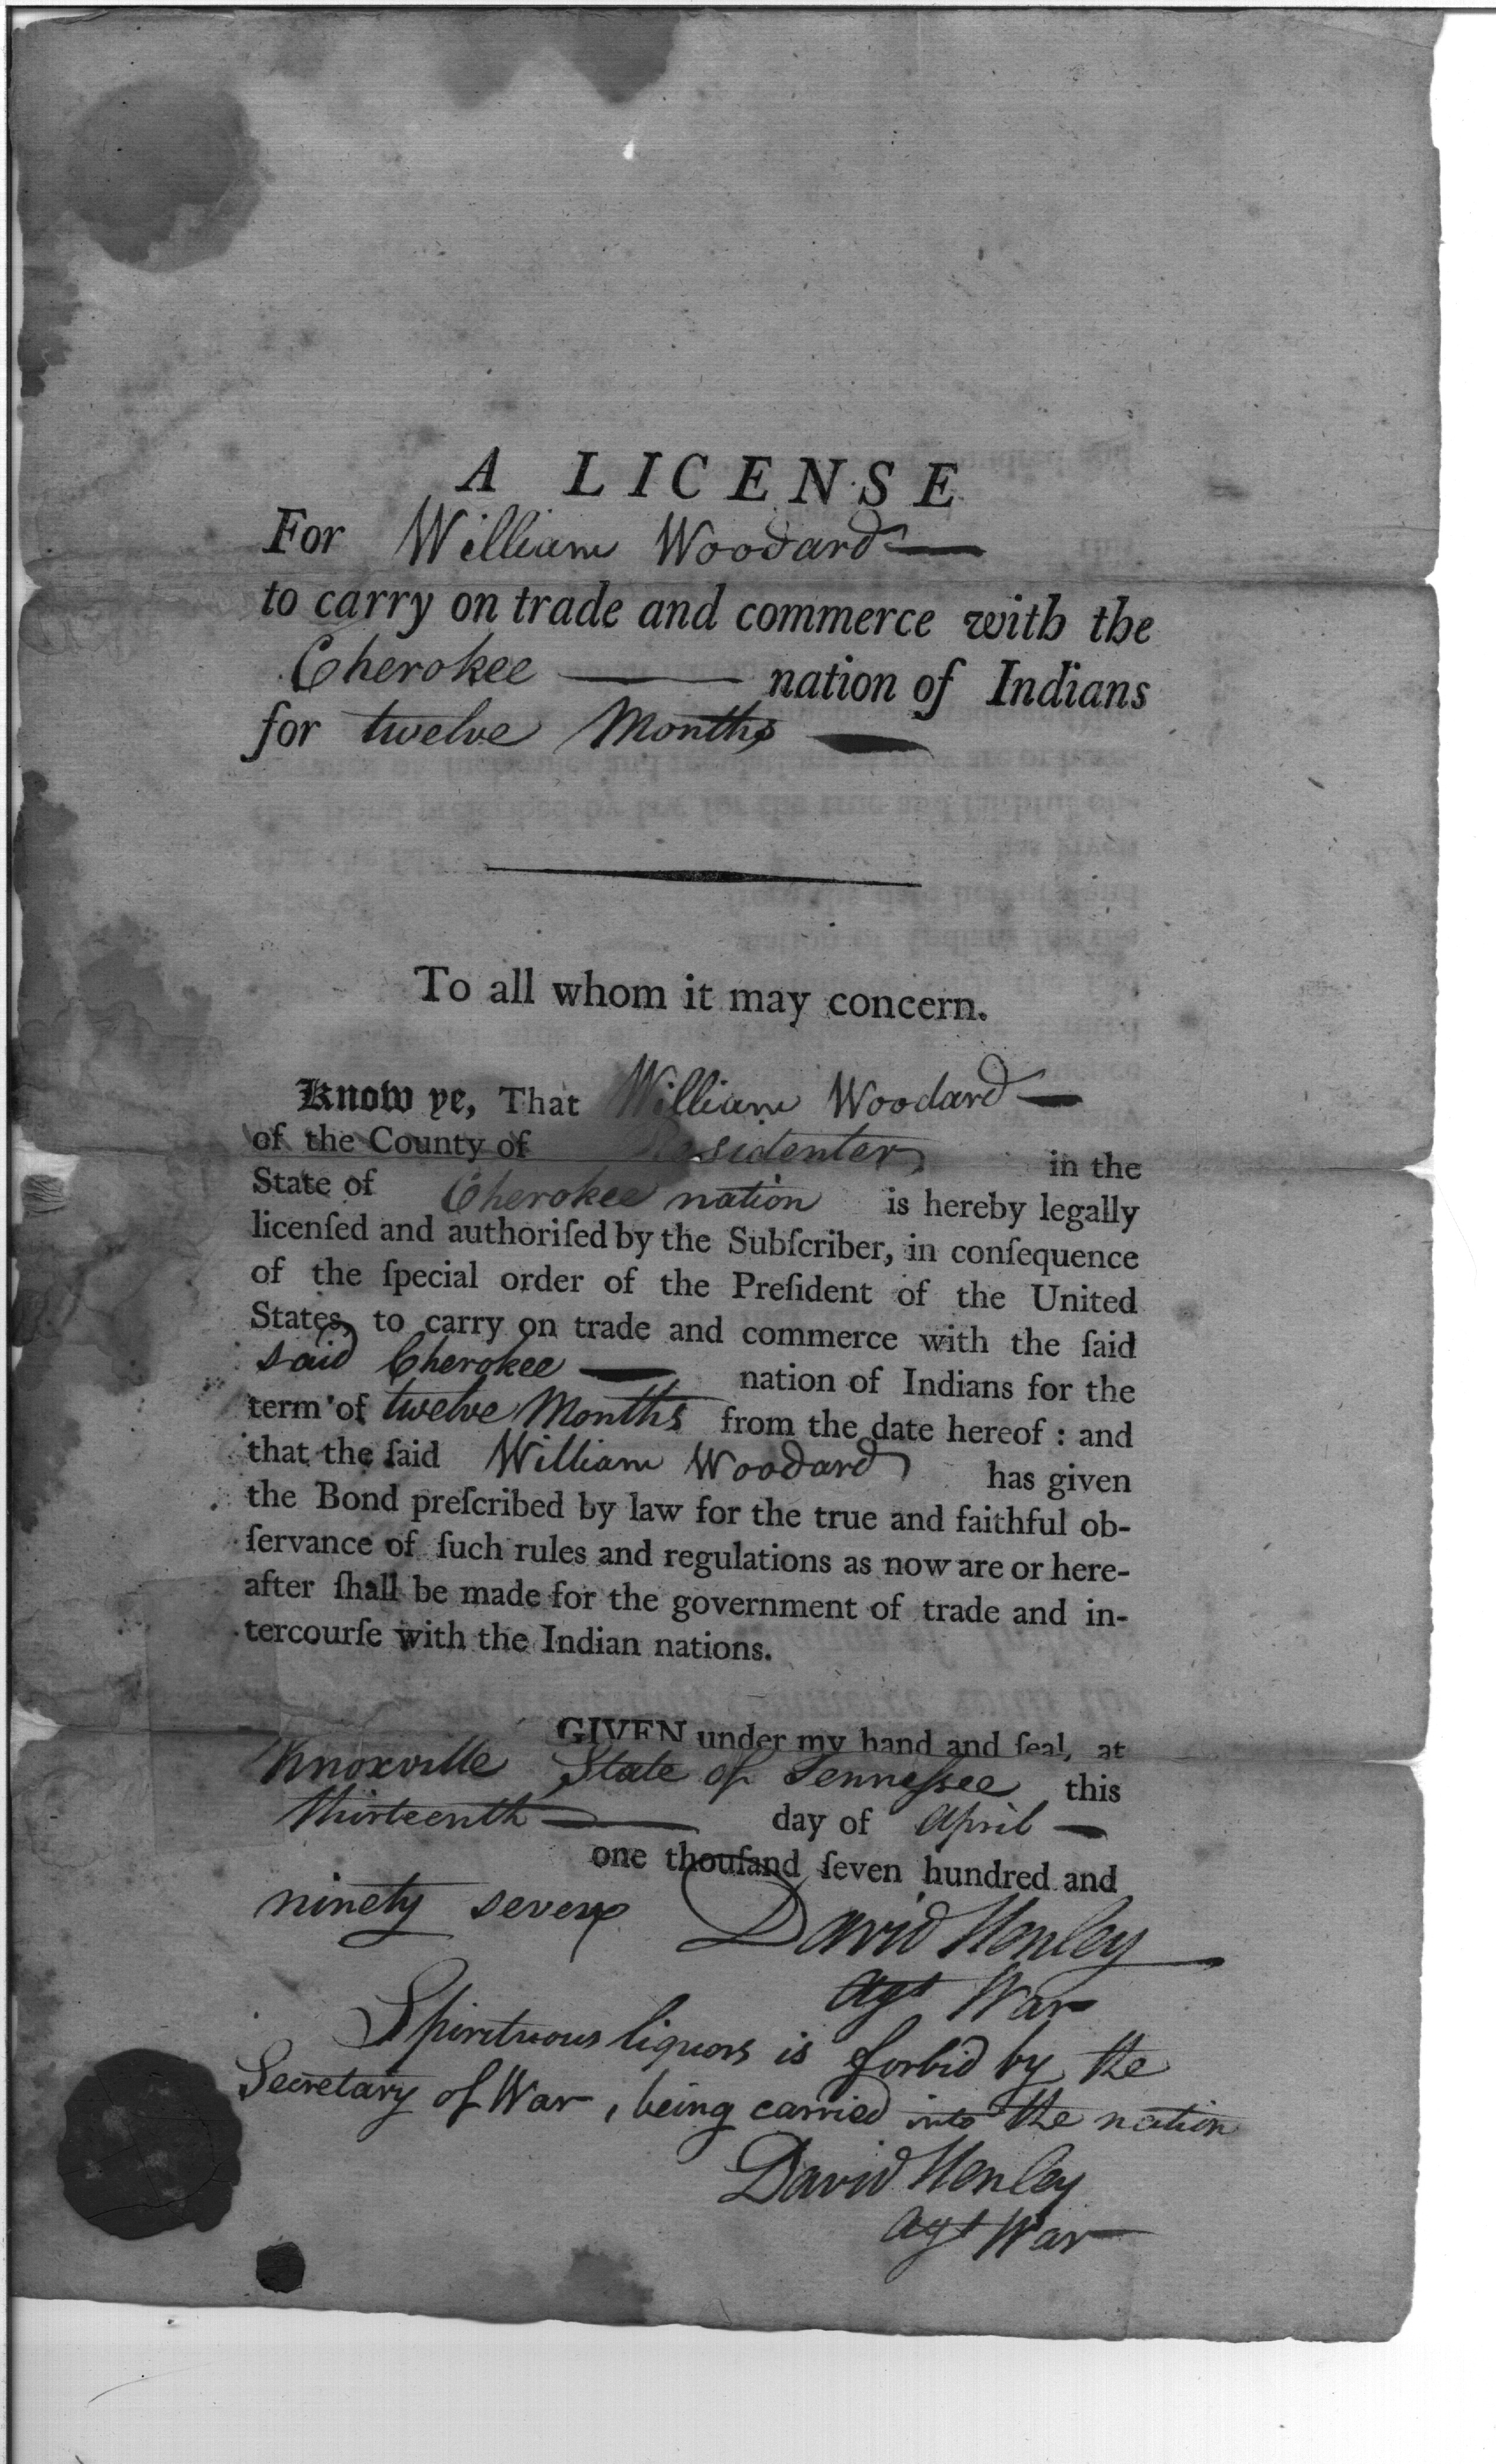 A LICENSE
For William Woodard
to carry on trade and commerce with the
Cherokee nation of Indians
for twelve Months
To all whom it may concern.
Know ye, That William Woodard
of the County of Residenter in the
State of Cherokee nation is hereby legally
licenſed and authoriſed by the Subſcriber, in conſequence
of the ſpecial order of the Preſident of the United
States, to carry on trade and commerce with the ſaid
said Cherokee nation of Indians for the
term of twelve Months from the date hereof : and
that the ſaid William Woodard has given
the Bond preſcribed by law for the true and faithful ob-
ſervance of ſuch rules and regulations as now are or here-
after ſhall be made for the government of trade and in-
tercourſe with the Indian nations.
GIVEN under my hand and ſeal, at
Knoxville State of Tenneſsee this
thirteenth day of April
one thouſand ſeven hundred and
ninety seven David Henley
Agt War
Spirituous liquors is forbid by the
Secretary of War, being carried into the nation
David Henley
Agt War